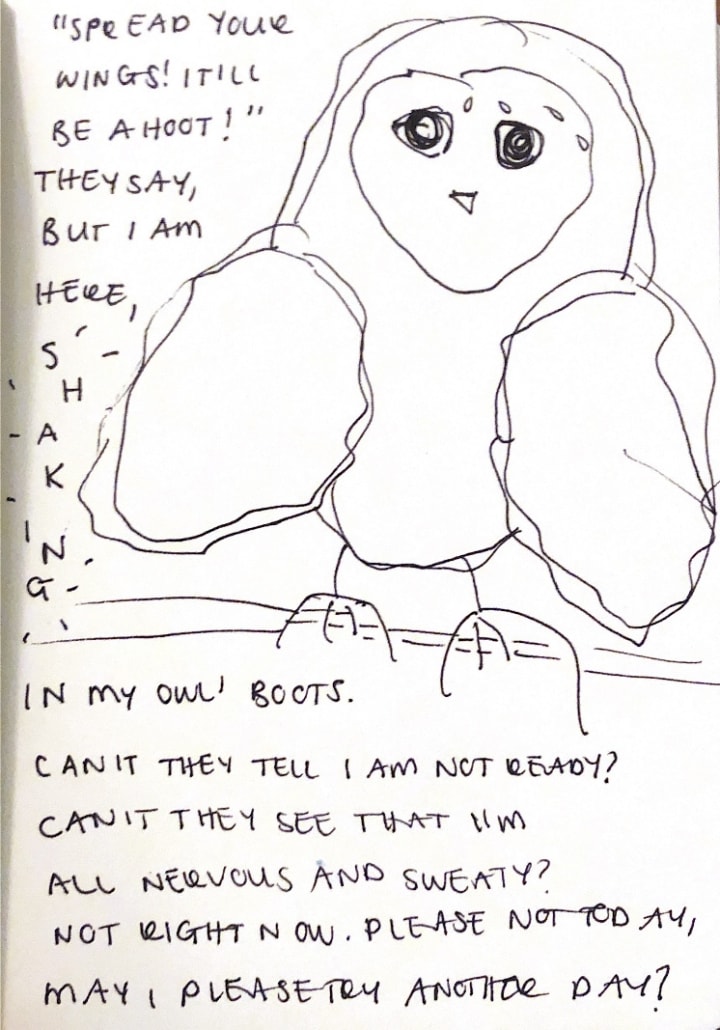 "SPREAD YOUR
WINGS! IT'LL
BE A HOOT!"
THEY SAY,
BUT I AM
HERE,
S
H
A
K
I
N
G
IN MY OWL' BOOTS.
CAN'T THEY TELL I AM NOT READY?
CAN'T THEY SEE THAT I'M
ALL NERVOUS AND SWEATY?
NOT RIGHT NOW. PLEASE NOT TODAY,
MAY I PLEASE TRY ANOTHER DAY?